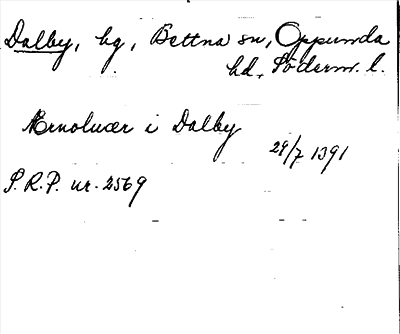 Dalby, hg, Bettna sn, Oppunda
hd, Söderm. l.
Ærnoluær i Dalby
29/7 1391
S.R.P. nr. 2569